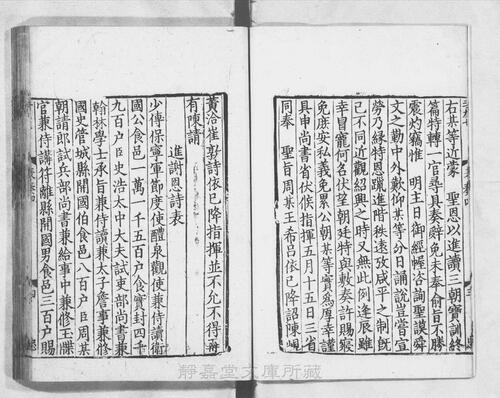 右某等近蒙　聖恩以進讀三朝寶訓終
篇特轉一官尋具奏辭免未奉俞旨不勝
震灼竊惟　明主日御經幄咨詢聖謨舜
文之勤中外歎仰某等分日誦說豈當宣
勞乃緣特恩躐進階秩遠攷咸平之制既
已不同近觀紹興之時又無此例逢辰雖
幸冒寵何名伏望朝廷特與敷奏許賜寢
免庶安私義免累公朝某等實爲厚幸謹
具申尚書省伏候指揮五月十五日三省
同奉　聖旨周某王希呂依已降詔陳峴
黃洽崔敦詩依已降指揮並不允不得再
有陳請
進謝恩詩表
少傅保寧軍節度使醴泉觀使兼侍讀衛
國公食邑一萬一千五百户食實封四千
九百户臣史浩太中大夫試吏部尚書兼
翰林學士承旨兼侍讀兼太子詹事兼修
國史管城縣開國伯食邑八百户臣周某
朝請郎試兵部尚書兼給事中兼修玉牒
官兼侍講符離縣開國男食邑三百户賜
靜嘉堂文庫所藏